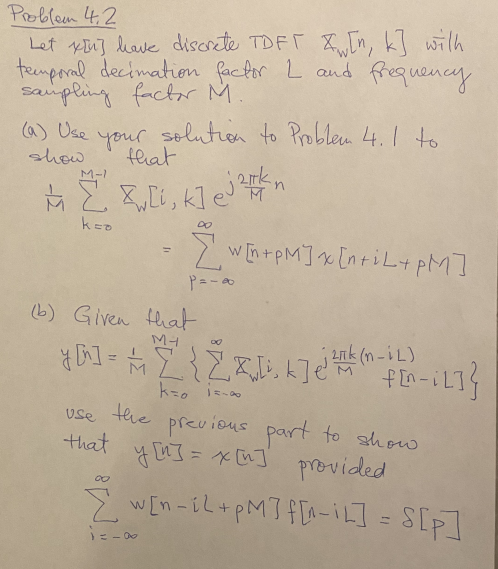 Problem 4.2
Let x[n] have discrete TDFT X_w[n, k] with
temporal decimation factor L and frequency
sampling factor M.
(a) Use your solution to Problem 4.1 to
show that
1/M Σ_{k=0}^{M-1} X_w[i, k] e^{j 2πk/M n}
= Σ_{p=-∞}^{∞} w[n+pM] x[n+iL+pM]
(b) Given that
y[n] = 1/M Σ_{k=0}^{M-1} { Σ_{i=-∞}^{∞} X_w[i, k] e^{j 2πk/M (n-iL)} f[n-iL] }
use the previous part to show
that y[n] = x[n] provided
Σ_{i=-∞}^{∞} w[n-iL+pM] f[n-iL] = δ[p]